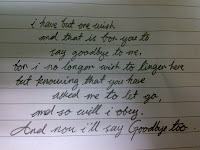 i have but one wish
and that is for you to
say goodbye to me.
for i no longer wish to linger here
but knowing that you have
asked me to let go,
and so will i obey.
And now i'll say Goodbye too.